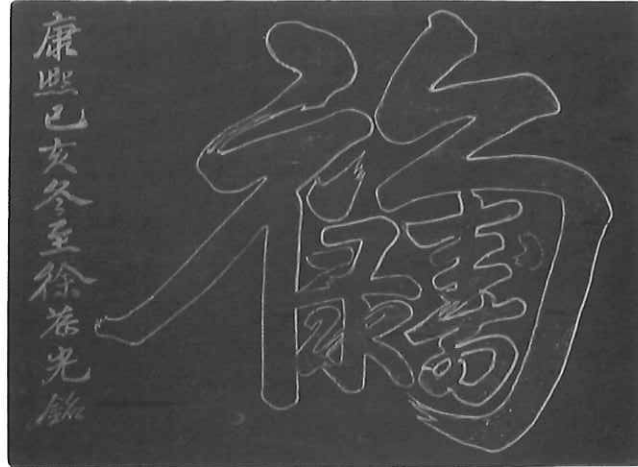 福祿壽
康熙己亥冬至徐葆光銘